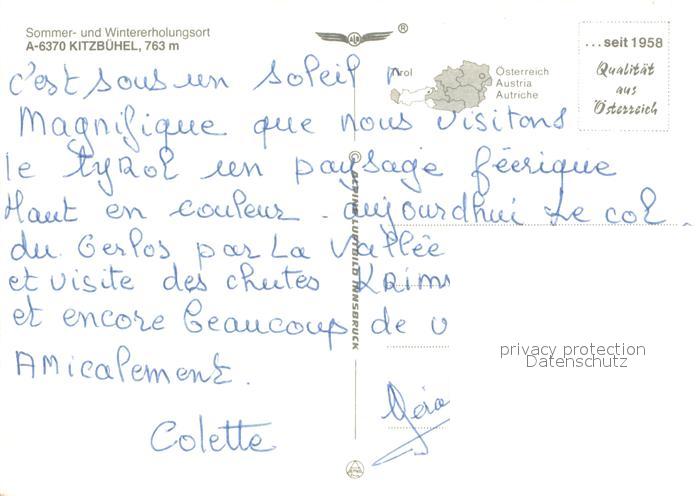 Sommer- und Wintererholungsort
A-6370 KITZBÜHEL, 763 m
®
...seit 1958
Qualität
aus
Österreich
Tirol
Österreich
Austria
Autriche
c'est sous un soleil
Magnifique que nous visitons
le tyrol un paysage féerique
Haut en couleur. aujourdhui Le col
du Gerlos par La Vallée
et visite des chutes Krimm
et encore beaucoup de v
Amicalement.
Colette
ALPINE LUFTBILD INNSBRUCK
privacy protection
Datenschutz